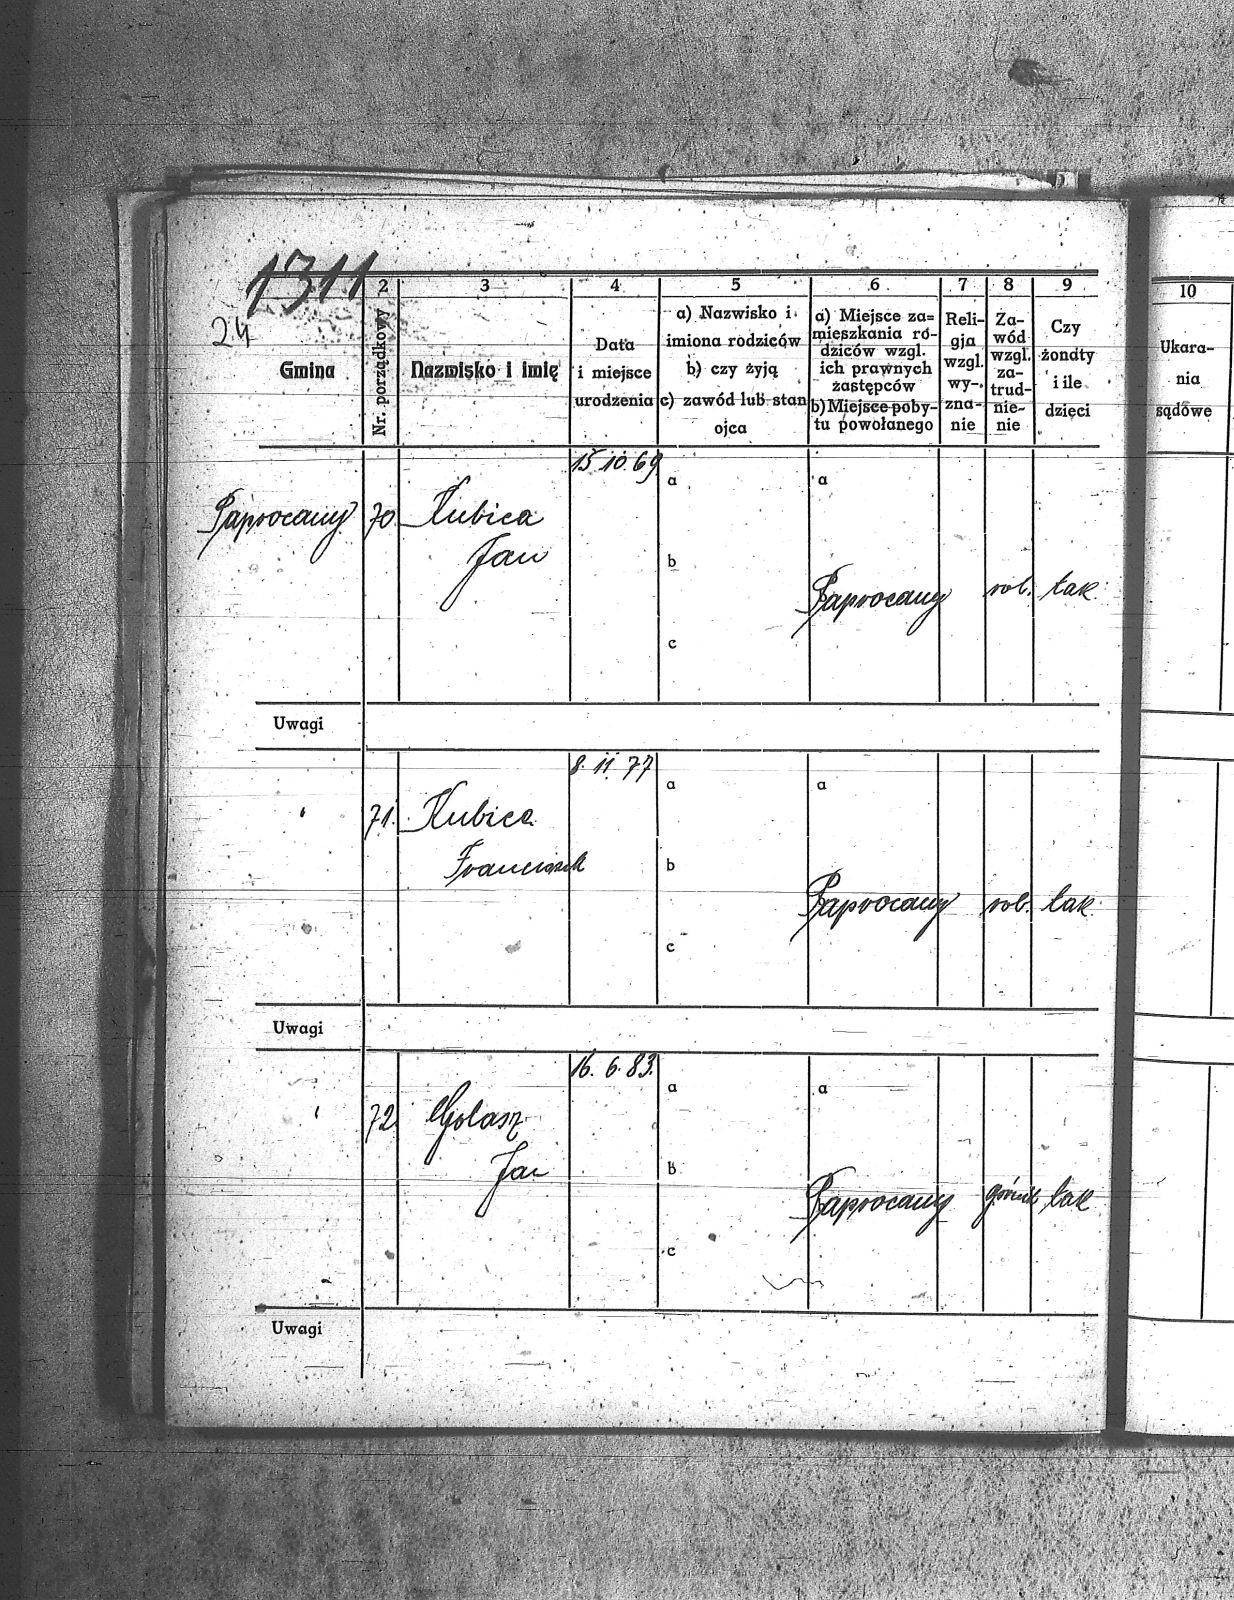 1311
24
2 3 4 5 6 7 8 9 10
Gmina
Nr. porządkowy
Nazwisko i imię
Data
i miejsce
urodzenia
a) Nazwisko i
imiona rodziców
b) czy żyją
c) zawód lub stan
ojca
a) Miejsce za=
mieszkania ro-
dziców wzgl.
ich prawnych
zastępców
b) Miejsce poby-
tu powołanego
Reli-
gja
wzgl.
wy-
zna-
nie
Za-
wód
wzgl.
za-
trud-
nie-
nie
Czy
żondty
i ile
dzięci
Ukara-
nia
sądowe
15 10 69
a a
Paprocany 70 Kubica
Jan
b
Paprocany rob. tak
c
Uwagi
8. 11. 77
a a
" 71. Kubica
Franciszek
b
Paprocany rob. tak
c
Uwagi
16. 6. 83.
a a
" 72 Golasz
Jan
b
Paprocany górnik tak
c
Uwagi